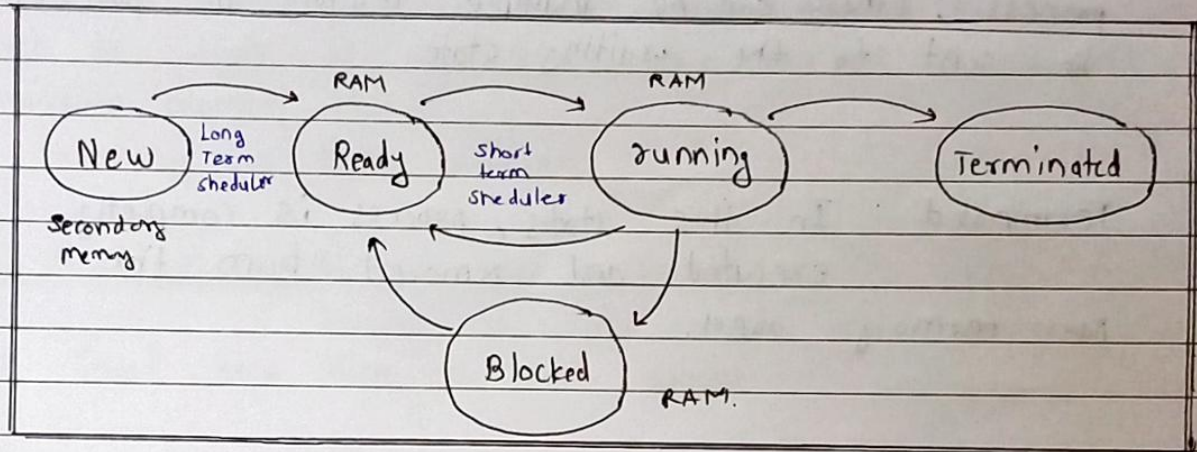 RAM
RAM
New
Long
Term
sheduler
Ready
short
term
sheduler
running
Terminated
Secondary
memory
Blocked
RAM.